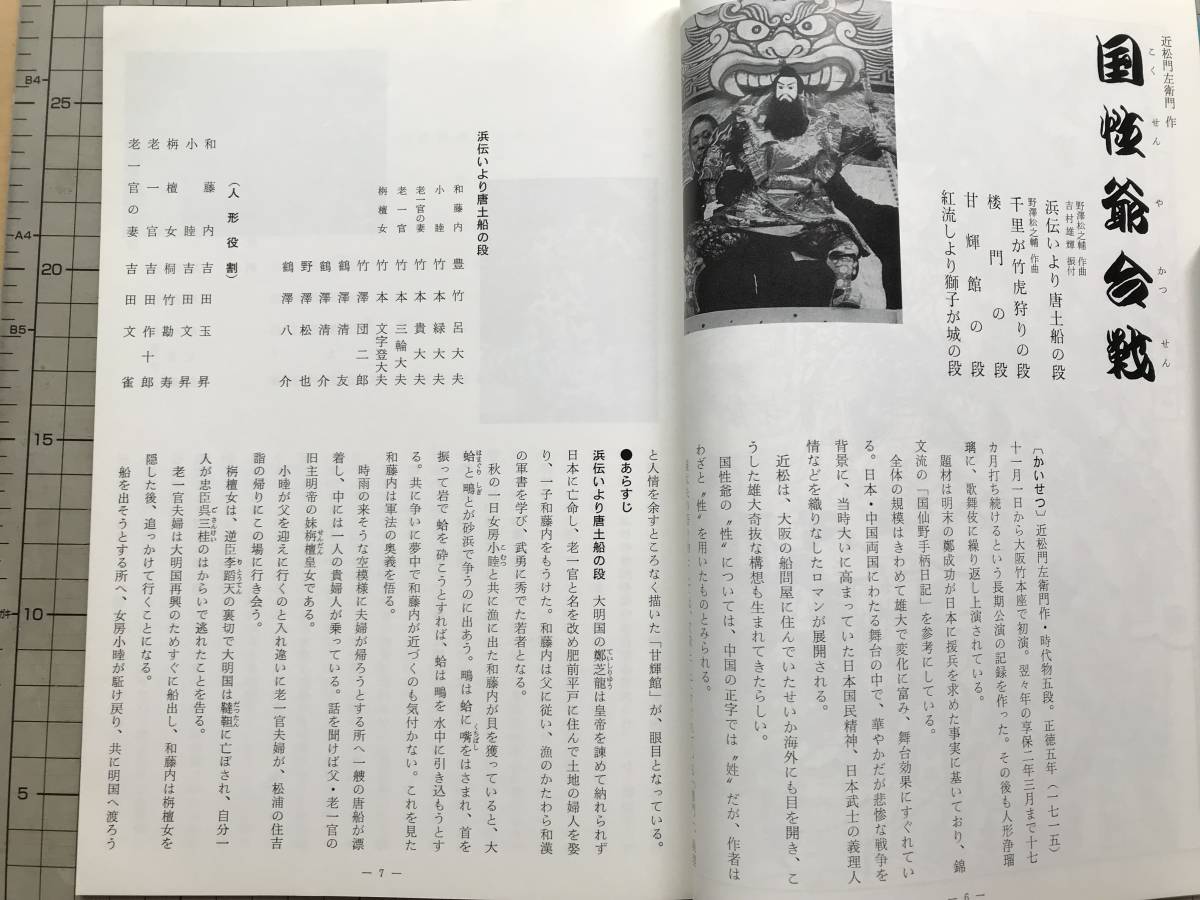 近松門左衛門 作
国性爺合戦
こく せん や かつ せん
野澤松之輔 作曲
吉村雄輝 振付
浜伝いより唐土船の段
野澤松之輔 作曲
千里が竹虎狩りの段
楼門の段
甘輝館の段
紅流しより獅子が城の段
〔かいせつ〕近松門左衛門作・時代物五段。正徳五年(一七一五)
十一月一日から大阪竹本座で初演。翌々年の享保二年三月まで十七
カ月打ち続けるという長期公演の記録を作った。その後も人形浄瑠
璃に、歌舞伎に繰り返し上演されている。
題材は明末の鄭成功が日本に援兵を求めた事実に基いており、錦
文流の「国仙野手柄日記」を参考にしている。
全体の規模はきわめて雄大で変化に富み、舞台効果にすぐれてい
る。日本・中国両国にわたる舞台の中で、華やかだが悲惨な戦争を
背景に、当時大いに高まっていた日本国民精神、日本武士の義理人
情などを織りなしたロマンが展開される。
近松は、大阪の船問屋に住んでいたせいか海外にも目を開き、こ
うした雄大奇抜な構想も生まれてきたらしい。
国性爺の〝性〟については、中国の正字では〝姓〟だが、作者は
わざと〝性〟を用いたものとみられる。
— 6 —
と人情を余すところなく描いた「甘輝館」が、眼目となっている。
●あらすじ
浜伝いより唐土船の段 大明国の鄭芝龍は皇帝を諫めて納れられず
ていしりゆう
日本に亡命し、老一官と名を改め肥前平戸に住んで土地の婦人を娶
り、一子和藤内をもうけた。和藤内は父に従い、漁のかたわら和漢
の軍書を学び、武勇に秀でた若者となる。
秋の一日女房小睦と共に漁に出た和藤内が貝を獲っていると、大
こむつ
蛤と鴫とが砂浜で争うのに出あう。鴫は蛤に嘴をはさまれ、首を
はまぐり しぎ くちばし
振って岩で蛤を砕こうとすれば、蛤は鴫を水中に引き込もうとす
る。共に争いに夢中で和藤内が近づくのも気付かない。これを見た
和藤内は軍法の奥義を悟る。
時雨の来そうな空模様に夫婦が帰ろうとする所へ一艘の唐船が漂
着し、中には一人の貴婦人が乗っている。話を聞けば父・老一官の
旧主明帝の妹栴檀皇女である。
せんだん
小睦が父を迎えに行くのと入れ違いに老一官夫婦が、松浦の住吉
詣の帰りにこの場に行き会う。
栴檀女は、逆臣李蹈天の裏切で大明国は韃靼に亡ぼされ、自分一
りとうてん だったん
人が忠臣呉三桂のはからいで逃れたことを告る。
ごさんけい
老一官夫婦は大明国再興のためすぐに船出し、和藤内は栴檀女を
隠した後、追っかけて行くことになる。
船を出そうとする所へ、女房小睦が駈け戻り、共に明国へ渡ろう
浜伝いより唐土船の段
和藤内 豊竹呂大夫
小睦 竹本緑大夫
老一官の妻 竹本貴大夫
老一官 竹本三輪大夫
栴檀女 竹本文字登大夫
竹澤団二郎
鶴澤清友
鶴澤清介
野澤松也
鶴澤八介
(人形役割)
和藤内 吉田玉昇
小睦 吉田文昇
栴檀女 桐竹勘寿
老一官 吉田作十郎
老一官の妻 吉田文雀
— 7 —
B4
25
20
B5
15
10
5